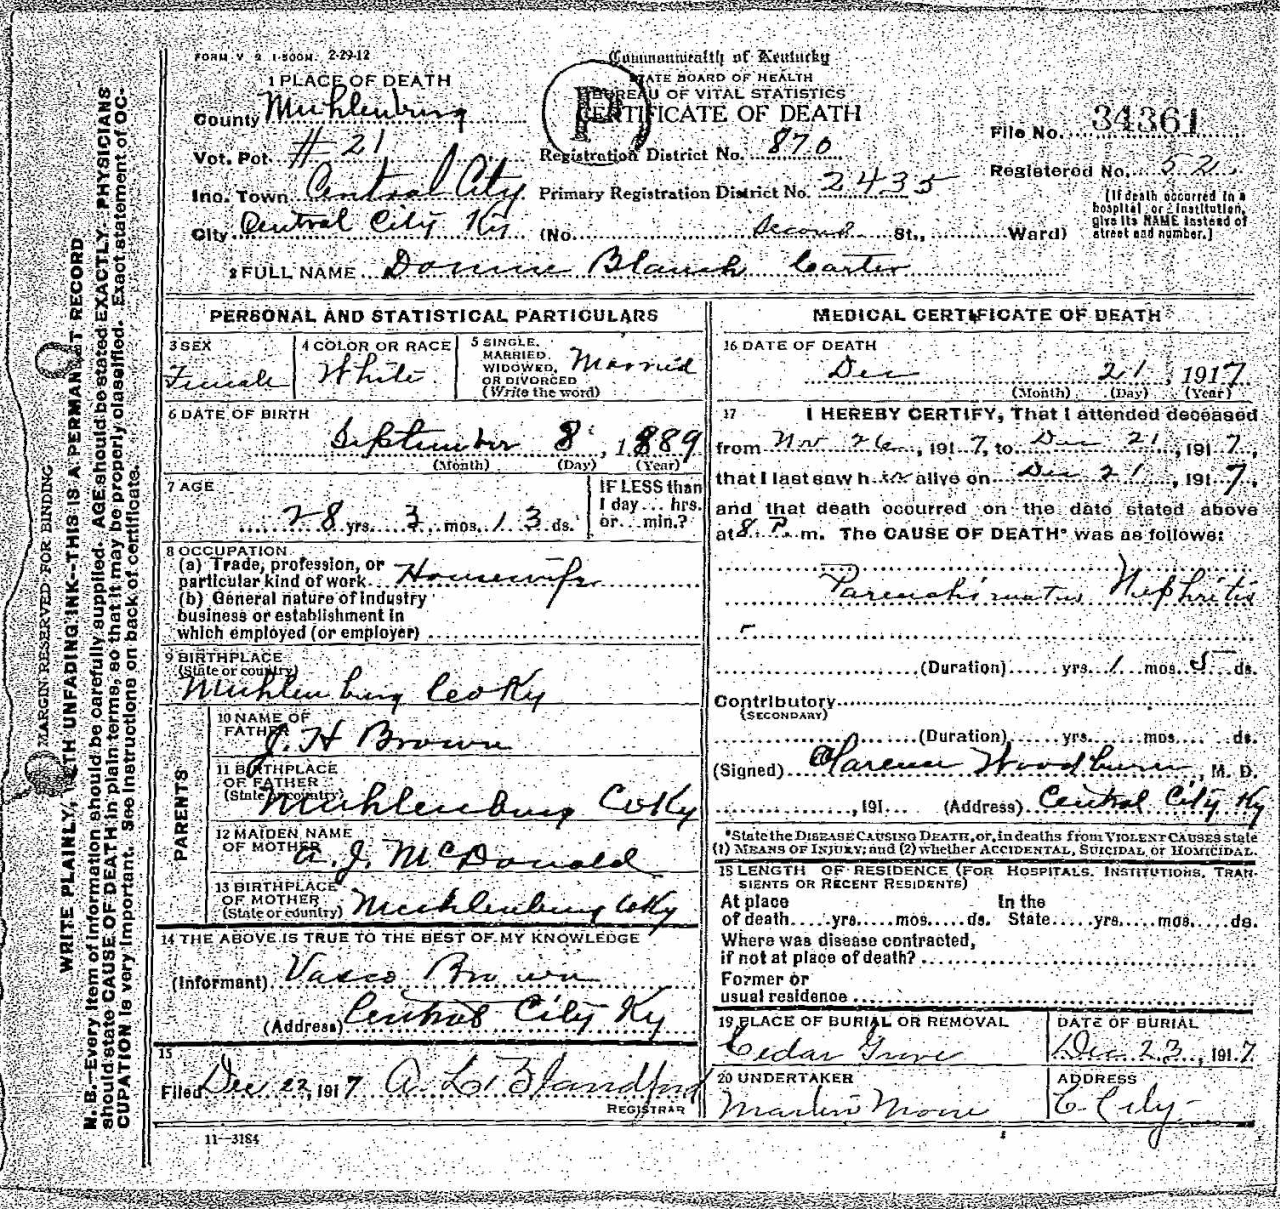 FORM V. S. 1-500M. 2-29-12
Commonwealth of Kentucky
STATE BOARD OF HEALTH
BUREAU OF VITAL STATISTICS
CERTIFICATE OF DEATH
P
File No. 34361
Registered No. 52
(If death occurred in a hospital or institution, give its NAME instead of street and number.)
1 PLACE OF DEATH
County Muhlenburg
Vot. Pct. # 21
Registration District No. 870
Inc. Town Central City
Primary Registration District No. 2435
City Central City Ky (No. Second St., Ward)
2 FULL NAME Donnie Blanch Carter
PERSONAL AND STATISTICAL PARTICULARS
3 SEX
Female
4 COLOR OR RACE
White
5 SINGLE, MARRIED, WIDOWED, OR DIVORCED (Write the word)
Married
6 DATE OF BIRTH
September 8, 1889
(Month) (Day) (Year)
7 AGE
28 yrs. 3 mos. 13 ds.
IF LESS than 1 day... hrs. or... min.?
8 OCCUPATION
(a) Trade, profession, or
particular kind of work Housewife
(b) General nature of industry
business or establishment in
which employed (or employer)
9 BIRTHPLACE
(State or country)
Muhlenburg Co Ky
PARENTS
10 NAME OF FATHER
J. H Brown
11 BIRTHPLACE OF FATHER
(State or country)
Muhlenburg Co Ky
12 MAIDEN NAME OF MOTHER
A. J. McDonald
13 BIRTHPLACE OF MOTHER
(State or country) Muhlenburg Co Ky
14 THE ABOVE IS TRUE TO THE BEST OF MY KNOWLEDGE
(Informant) Vasco Brown
(Address) Central City Ky
15
Filed Dec 22, 1917 A. L. Blandford
REGISTRAR
11-3184
MEDICAL CERTIFICATE OF DEATH
16 DATE OF DEATH
Dec 21, 1917
(Month) (Day) (Year)
17 I HEREBY CERTIFY, That I attended deceased
from Nov 26, 1917, to Dec 21, 1917,
that I last saw her alive on Dec 21, 1917,
and that death occurred on the date stated above
at 8. P. m. The CAUSE OF DEATH* was as follows:
Nephritis
(Duration) yrs. 1 mos. 5 ds.
Contributory
(SECONDARY)
(Duration) yrs. mos. ds.
(Signed) Clarence Woodburn, M. D.
, 191 (Address) Central City Ky
*State the DISEASE CAUSING DEATH, or, in deaths from VIOLENT CAUSES state
(1) MEANS OF INJURY; and (2) whether ACCIDENTAL, SUICIDAL or HOMICIDAL.
18 LENGTH OF RESIDENCE (FOR HOSPITALS, INSTITUTIONS, TRANSIENTS OR RECENT RESIDENTS)
At place In the
of death yrs. mos. ds. State yrs. mos. ds.
Where was disease contracted,
if not at place of death?
Former or
usual residence
19 PLACE OF BURIAL OR REMOVAL
Cedar Grove
DATE OF BURIAL
Dec. 23, 1917
20 UNDERTAKER
Martin Moore
ADDRESS
C. City
MARGIN RESERVED FOR BINDING
WRITE PLAINLY, WITH UNFADING INK--THIS IS A PERMANENT RECORD
N. B.--Every item of information should be carefully supplied. AGE should be stated EXACTLY. PHYSICIANS
should state CAUSE OF DEATH in plain terms, so that it may be properly classified. Exact statement of OC-
CUPATION is very important. See instructions on back of certificate.